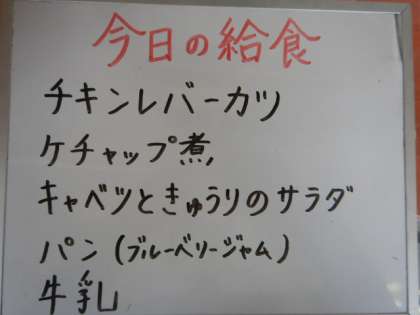 今日の給食
チキンレバーカツ
ケチャップ煮
キャベツときゅうりのサラダ
パン(ブルーベリージャム)
牛乳